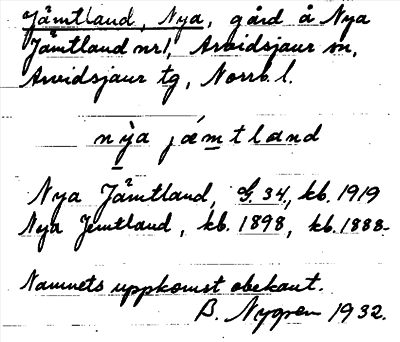 Jämtland, Nya, gård å Nya
Jämtland nr 1, Arvidsjaur sn,
Arvidsjaur tg, Norrb. l.
nỳa jǽmtland
Nya Jämtland, G. 34, kb. 1919
Nya Jemtland, kb. 1898, kb. 1888.
Namnets uppkomst obekant.
B. Nygren 1932.